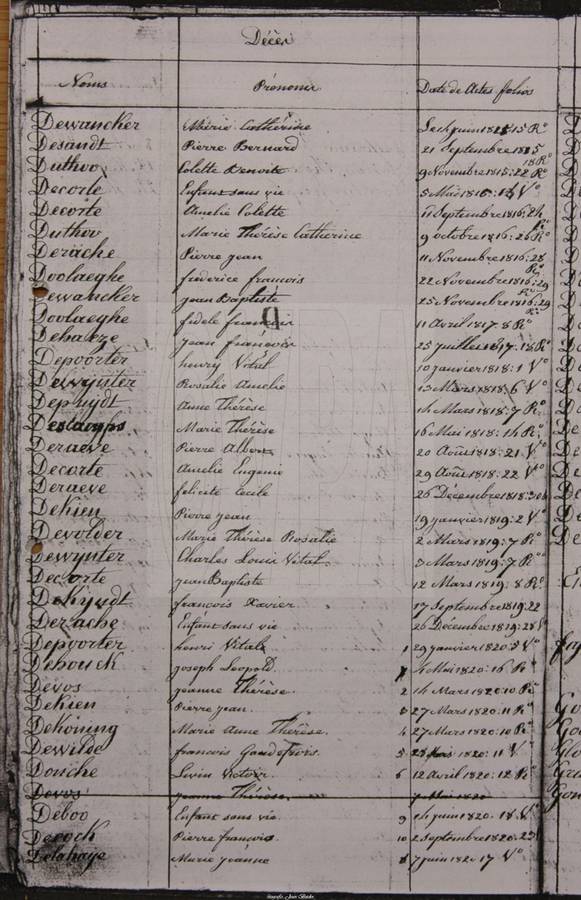 Décès
Noms Prénoms Date de Actes folios
Dewancker Marie Catherine Le 4 juin 1815 15 Ro
Desandt Pierre Bernard 21 Septembre 1815 18 Ro
Duthoo Colette Benoite 9 Novembre 1815: 22 Ro
Decorte Enfant sans vie 5 Mai 1816: 14 Vo
Decorte Amelie Colette 11 Septembre 1816: 24 Ro
Duthoo Marie Thérèse Catherine 9 octobre 1816: 26 Ro
Derache Pierre jean 11 Novembre 1816: 28 Ro
Doolaeghe frederice francois 22 Novembre 1816: 29 Ro
Dewancker jean Baptiste 25 Novembre 1816: 29 Ro
Doolaeghe fidele francois 11 Avril 1817 8 Ro
Dehaeze jean francois 25 juillet 1817: 18 Ro
Depoorter henry Vital 10 janvier 1818: 1 Vo
Dewynter Rosalie Amelie 13 Mars 1818: 6 Vo
Depuydt Anne Thérèse 14 Mars 1818: 7 Ro
Destamps Marie Thérèse 16 Mai 1818: 14 Ro
Deraeve Pierre Albert 20 Août 1818: 21 Vo
Decorte Amelie Eugenie 29 Août 1818: 22 Vo
Deraeve felicite Cecile 26 Décembre 1818: 30
Dekien Pierre jean 19 janvier 1819: 2 Vo
Devolder Marie Thérèse Rosalie 2 Mars 1819: 7 Ro
Dewynter Charles Louis Vital 3 Mars 1819: 7 Ro
Decorte jean Baptiste 12 Mars 1819: 8 Ro
Dekeyndt francois Xavier 17 Septembre 1819: 22
Derache Enfant sans vie 26 Décembre 1819: 28 Vo
Depoorter henri Vitale 1 29 janvier 1820 5 Vo
Debouck joseph Leopold 7 4 Mai 1820: 16 Ro
Devos jeanne Thérèse 2 14 Mars 1820: 10 Ro
Dekien Pierre jean 3 27 Mars 1820: 11 Ro
Dekoning Marie Anne Thérèse 4 27 Mars 1820: 10 Ro
Dewilde francois Gaudefrois 5 1820: 11 V
Douche Livin Victoir 6 12 Avril 1820: 12 Ro
Devos jeanne Thérèse 7 Mai 1820
Deboo Enfant sans vie 9 14 juin 1820: 18 Vo
Decock Pierre francois 10 2 Septembre 1820: 23
Delahaye Marie jeanne 8 7 juin 1820 17 Vo